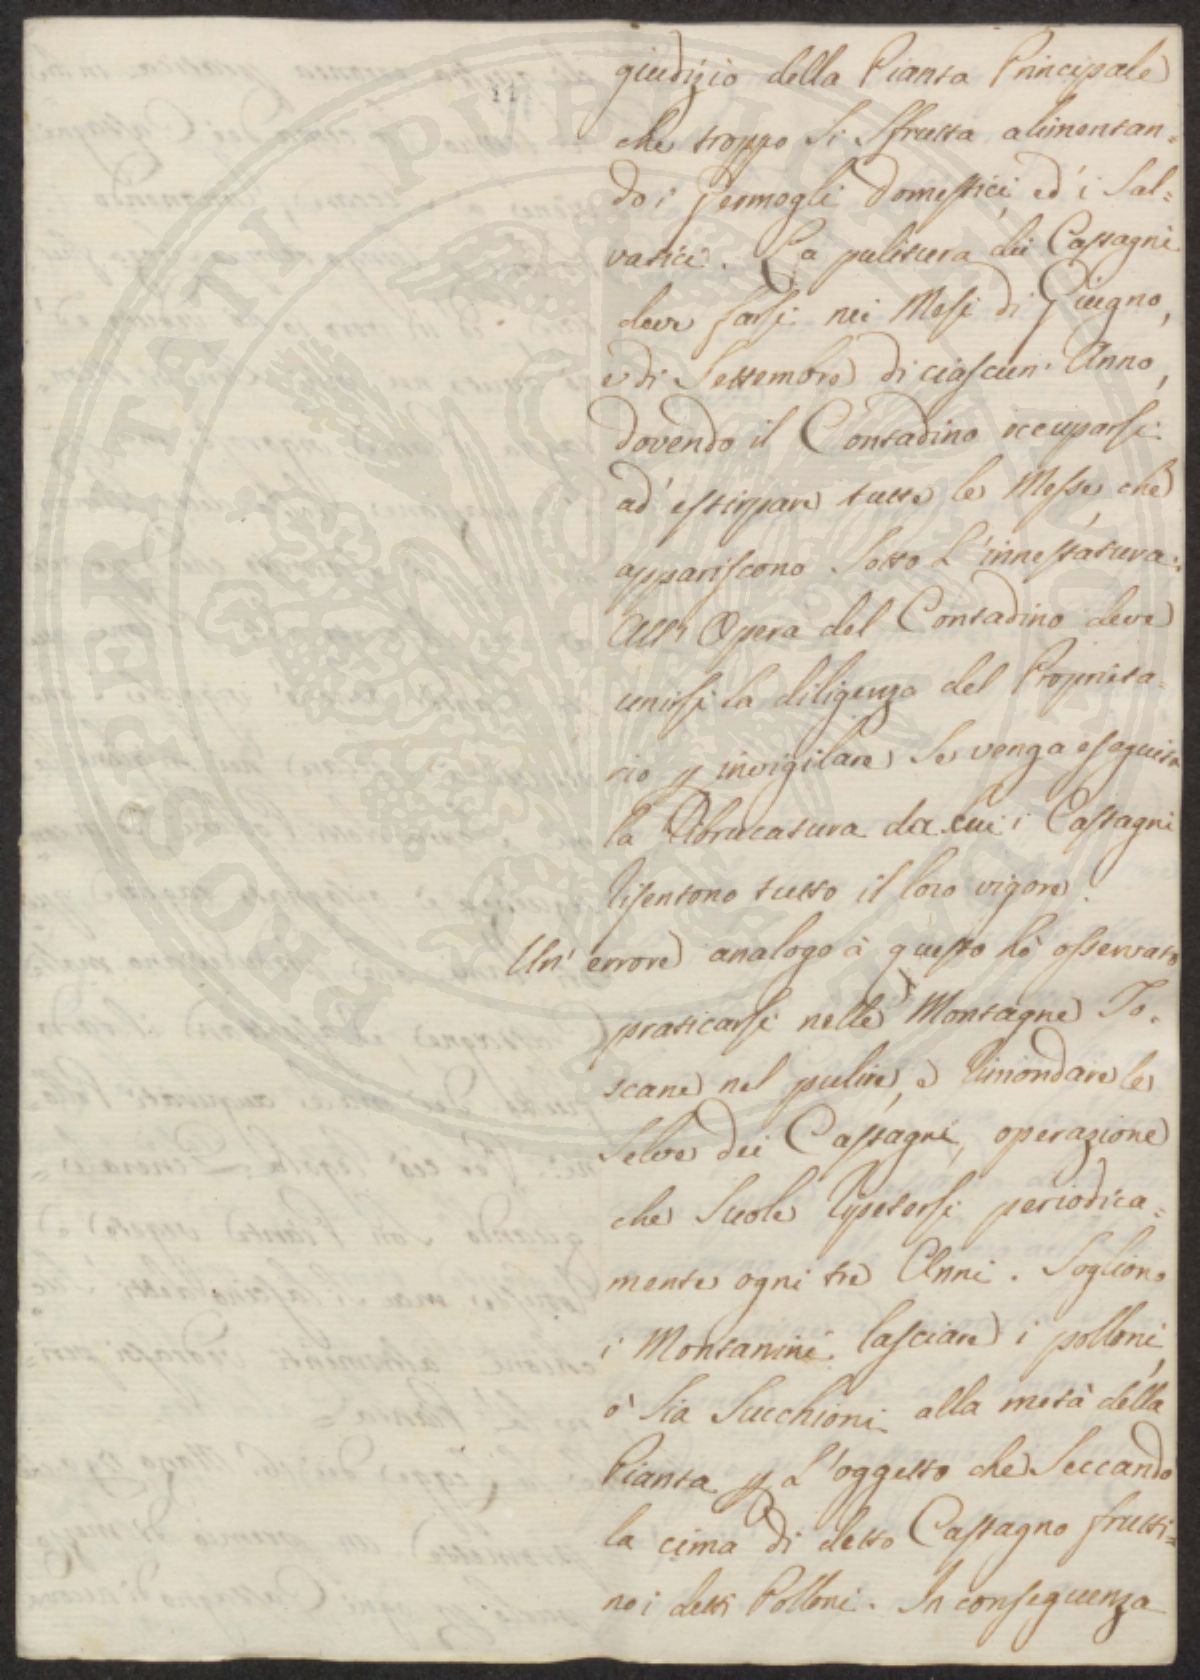 giudizio della Pianta Principale
che troppo si sfrutta alimentan=
do i germogli domestici ed' i Sal=
vatici. La pulitura dei Castagni
deve farsi nei Mesi di Giugno,
e di Settembre di ciascun' Anno,
dovendo il Contadino occuparsi
ad' estirpare tutte le Messe, che
appariscono sotto L'innestatura.
All' Opera del Contadino deve
unirsi la diligenza del Proprieta=
rio p invigilare se venga eseguita
la Abrucatura da cui i Castagni
risentono tutto il loro vigore.
Un' errore analogo à questo hò osservato
praticarsi nelle Montagne To=
scane nel pulire, e rimondare le
Selve dei Castagni, operazione
che suole ripetersi periodica=
mente ogni tre Anni. Sogliono
i Montanini lasciare i polloni,
ò sia Succhioni alla metà della
Pianta p L'oggetto che seccando
la cima di detto Castagno frutti=
no i detti Polloni. In conseguenza
PROSPERITATI PUBLICAE